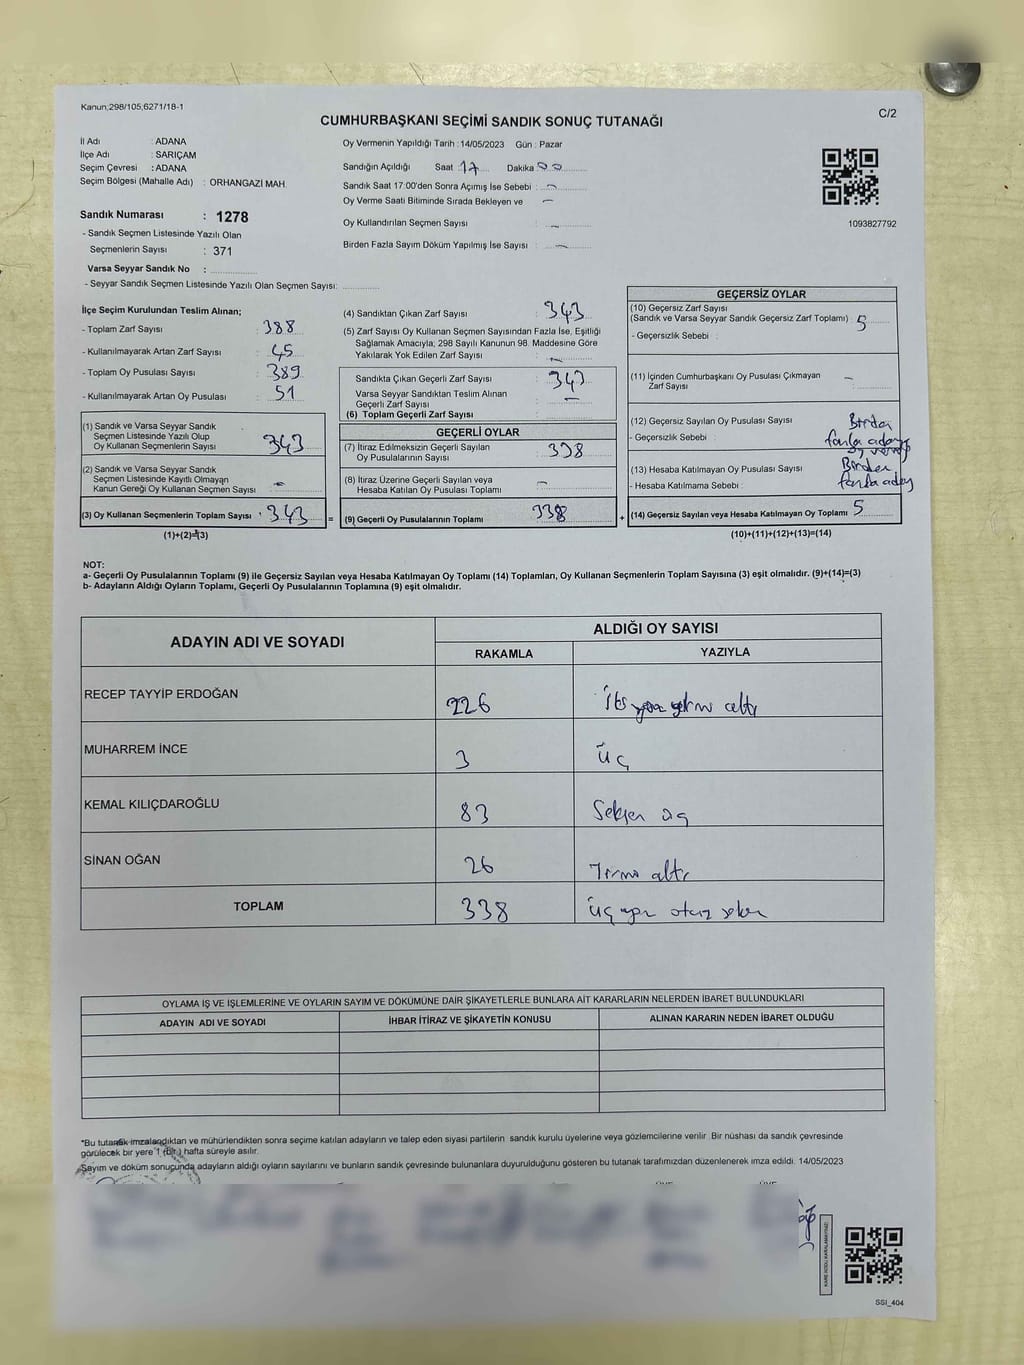 Kanun,298/105,6271/18-1
C/2
CUMHURBAŞKANI SEÇİMİ SANDIK SONUÇ TUTANAĞI
İl Adı : ADANA
İlçe Adı : SARIÇAM
Seçim Çevresi : ADANA
Seçim Bölgesi (Mahalle Adı) : ORHANGAZİ MAH.
Sandık Numarası : 1278
- Sandık Seçmen Listesinde Yazılı Olan
Seçmenlerin Sayısı : 371
Varsa Seyyar Sandık No :
- Seyyar Sandık Seçmen Listesinde Yazılı Olan Seçmen Sayısı:
Oy Vermenin Yapıldığı Tarih :14/05/2023 Gün : Pazar
Sandığın Açıldığı Saat 17 Dakika 00
Sandık Saat 17:00'den Sonra Açımış İse Sebebi : -
Oy Verme Saati Bitiminde Sırada Bekleyen ve -
Oy Kullandırılan Seçmen Sayısı : -
Birden Fazla Sayım Döküm Yapılmış İse Sayısı : -
1093827792
İlçe Seçim Kurulundan Teslim Alınan;
- Toplam Zarf Sayısı : 388
- Kullanılmayarak Artan Zarf Sayısı : 45
- Toplam Oy Pusulası Sayısı : 389
- Kullanılmayarak Artan Oy Pusulası : 51
(1) Sandık ve Varsa Seyyar Sandık
Seçmen Listesinde Yazılı Olup
Oy Kullanan Seçmenlerin Sayısı : 343
(2) Sandık ve Varsa Seyyar Sandık
Seçmen Listesinde Kayıtlı Olmayan
Kanun Gereği Oy Kullanan Seçmen Sayısı : -
(3) Oy Kullanan Seçmenlerin Toplam Sayısı : 343 =
(1)+(2)=(3)
(4) Sandıktan Çıkan Zarf Sayısı : 343
(5) Zarf Sayısı Oy Kullanan Seçmen Sayısından Fazla İse, Eşitliği
Sağlamak Amacıyla; 298 Sayılı Kanunun 98. Maddesine Göre
Yakılarak Yok Edilen Zarf Sayısı : -
Sandıkta Çıkan Geçerli Zarf Sayısı : 343
Varsa Seyyar Sandıktan Teslim Alınan
Geçerli Zarf Sayısı : -
(6) Toplam Geçerli Zarf Sayısı :
GEÇERLİ OYLAR
(7) İtiraz Edilmeksizin Geçerli Sayılan
Oy Pusulalarının Sayısı : 338
(8) İtiraz Üzerine Geçerli Sayılan veya
Hesaba Katılan Oy Pusulası Toplamı : -
(9) Geçerli Oy Pusulalarının Toplamı 338 +
GEÇERSİZ OYLAR
(10) Geçersiz Zarf Sayısı
(Sandık ve Varsa Seyyar Sandık Geçersiz Zarf Toplamı) : 5
- Geçersizlik Sebebi :
(11) İçinden Cumhurbaşkanı Oy Pusulası Çıkmayan
Zarf Sayısı : -
(12) Geçersiz Sayılan Oy Pusulası Sayısı : Birden
- Geçersizlik Sebebi : fazla adaya
oy verilip
(13) Hesaba Katılmayan Oy Pusulası Sayısı : Birden
- Hesaba Katılmama Sebebi : fazla aday
(14) Geçersiz Sayılan veya Hesaba Katılmayan Oy Toplamı : 5
(10)+(11)+(12)+(13)=(14)
NOT:
a- Geçerli Oy Pusulalarının Toplamı (9) ile Geçersiz Sayılan veya Hesaba Katılmayan Oy Toplamı (14) Toplamları, Oy Kullanan Seçmenlerin Toplam Sayısına (3) eşit olmalıdır. (9)+(14)=(3)
b- Adayların Aldığı Oyların Toplamı, Geçerli Oy Pusulalarının Toplamına (9) eşit olmalıdır.
ADAYIN ADI VE SOYADI ALDIĞI OY SAYISI
RAKAMLA YAZIYLA
RECEP TAYYİP ERDOĞAN 226 İki yüz yirmi altı
MUHARREM İNCE 3 üç
KEMAL KILIÇDAROĞLU 83 Seksen üç
SİNAN OĞAN 26 Yirmi altı
TOPLAM 338 üç yüz otuz sekiz
OYLAMA İŞ VE İŞLEMLERİNE VE OYLARIN SAYIM VE DÖKÜMÜNE DAİR ŞİKAYETLERLE BUNLARA AİT KARARLARIN NELERDEN İBARET BULUNDUKLARI
ADAYIN ADI VE SOYADI İHBAR İTİRAZ VE ŞİKAYETİN KONUSU ALINAN KARARIN NEDEN İBARET OLDUĞU
*Bu tutanak imzalandıktan ve mühürlendikten sonra seçime katılan adayların ve talep eden siyasi partilerin sandık kurulu üyelerine veya gözlemcilerine verilir. Bir nüshası da sandık çevresinde
görülecek bir yere 1 (bir) hafta süreyle asılır.
Sayım ve döküm sonuçunda adayların aldığı oyların sayılarını ve bunların sandık çevresinde bulunanlara duyurulduğunu gösteren bu tutanak tarafımızdan düzenlenerek imza edildi. 14/05/2023
KARE KODU KARALAMAYINIZ!
SSI_404